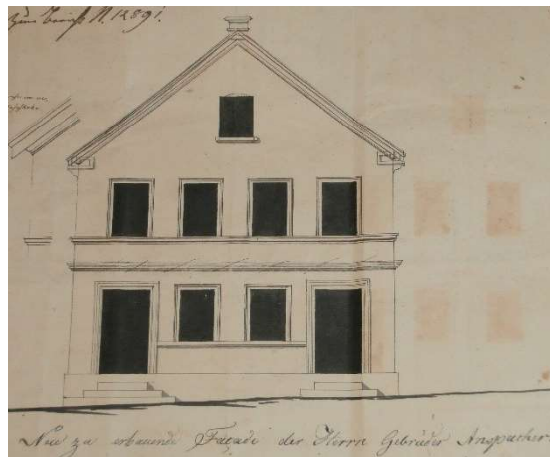 Zum Bericht N. 12891.
Neu zu erbauende Façade der Herrn Gebrüder Anspacher